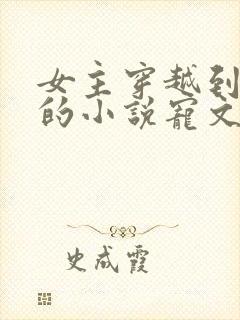 女主穿越到
的小说宠文
史成霞